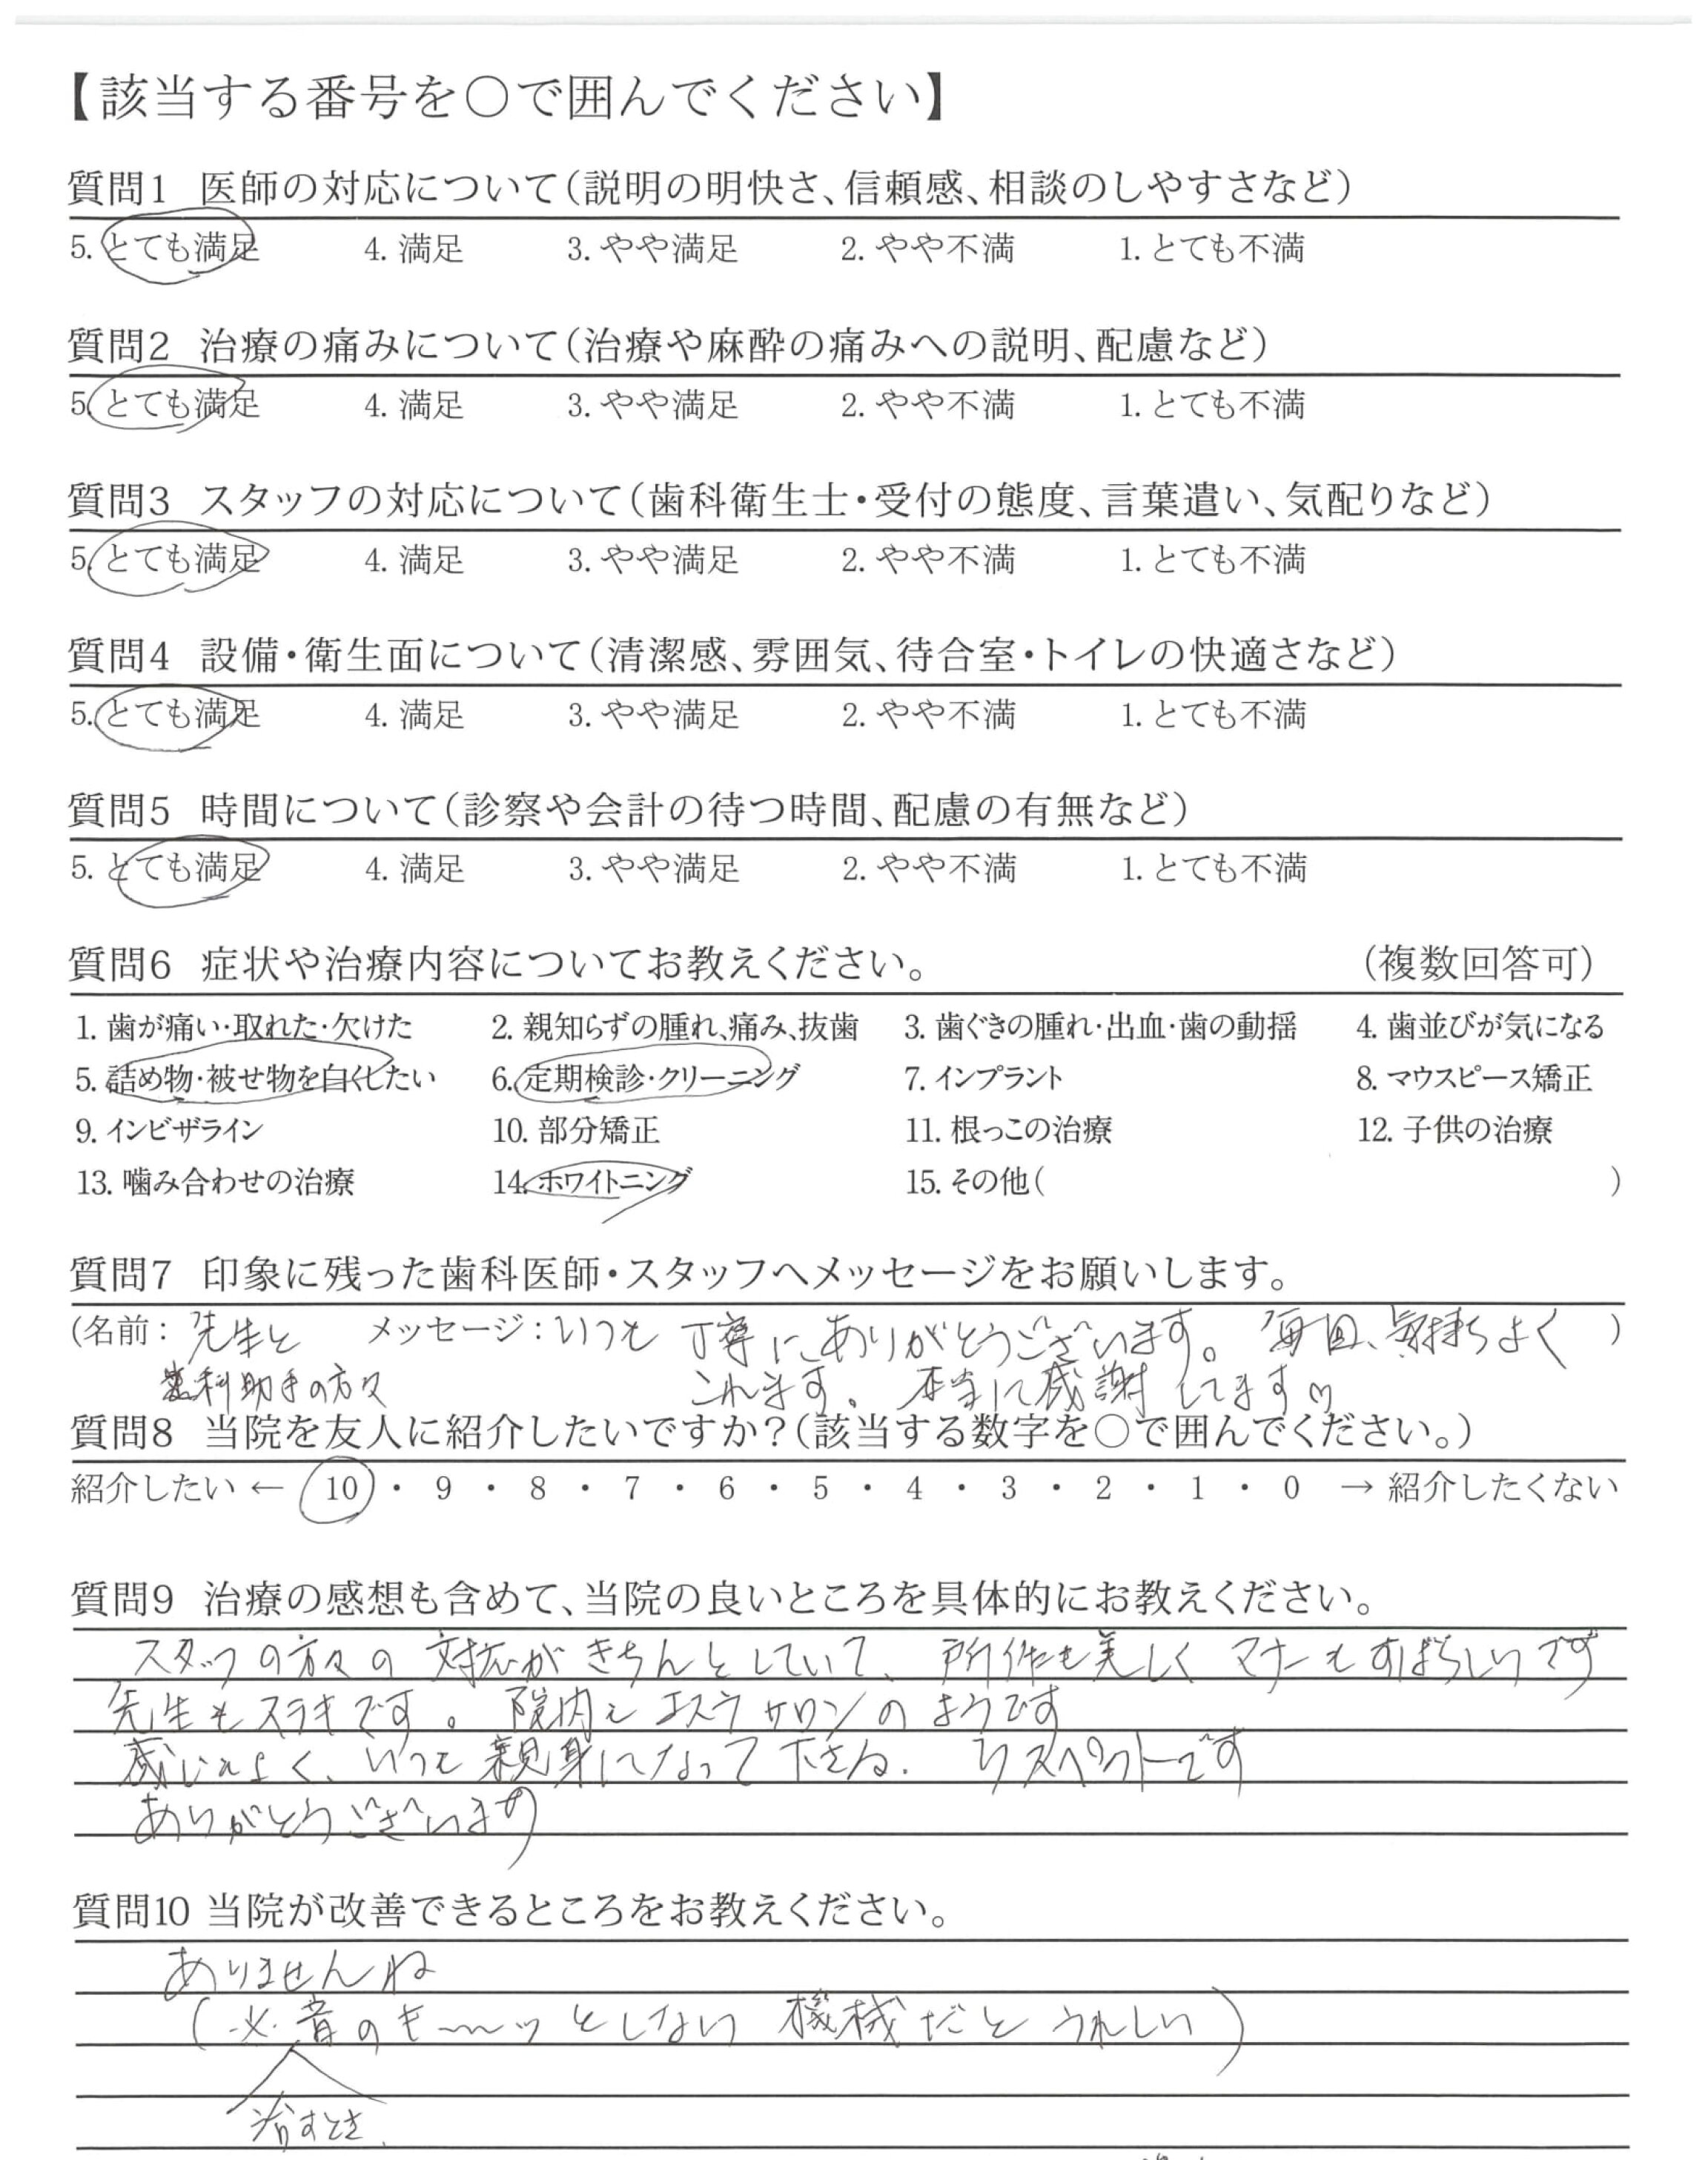 【該当する番号を〇で囲んでください】
質問1 医師の対応について(説明の明快さ、信頼感、相談のしやすさなど)
5. とても満足 4. 満足 3. やや満足 2. やや不満 1. とても不満
質問2 治療の痛みについて(治療や麻酔の痛みへの説明、配慮など)
5. とても満足 4. 満足 3. やや満足 2. やや不満 1. とても不満
質問3 スタッフの対応について(歯科衛生士・受付の態度、言葉遣い、気配りなど)
5. とても満足 4. 満足 3. やや満足 2. やや不満 1. とても不満
質問4 設備・衛生面について(清潔感、雰囲気、待合室・トイレの快適さなど)
5. とても満足 4. 満足 3. やや満足 2. やや不満 1. とても不満
質問5 時間について(診察や会計の待つ時間、配慮の有無など)
5. とても満足 4. 満足 3. やや満足 2. やや不満 1. とても不満
質問6 症状や治療内容についてお教えください。 (複数回答可)
1. 歯が痛い・取れた・欠けた 2. 親知らずの腫れ、痛み、抜歯 3. 歯ぐきの腫れ・出血・歯の動揺 4. 歯並びが気になる
5. 詰め物・被せ物を白くしたい 6. 定期検診・クリーニング 7. インプラント 8. マウスピース矯正
9. インビザライン 10. 部分矯正 11. 根っこの治療 12. 子供の治療
13. 噛み合わせの治療 14. ホワイトニング 15. その他( )
質問7 印象に残った歯科医師・スタッフへメッセージをお願いします。
(名前: 先生と メッセージ: いつも 丁寧にありがとうございます。 毎回、気持ちよく )
歯科助手の方々 これます。 本当に感謝してます♡
質問8 当院を友人に紹介したいですか?(該当する数字を〇で囲んでください。)
紹介したい ← 10 ・ 9 ・ 8 ・ 7 ・ 6 ・ 5 ・ 4 ・ 3 ・ 2 ・ 1 ・ 0 → 紹介したくない
質問9 治療の感想も含めて、当院の良いところを具体的にお教えください。
スタッフの方々の 対応がきちんとしていて、 所作も美しく マナーもすばらしいです
先生もステキです。 院内も エステサロンのようです
感じもよく、いつも親身になって下さる. リスペクトです
ありがとうございます
質問10 当院が改善できるところをお教えください。
ありませんね
( 音のキ〜〜ッ としない 機械だと うれしい)
治すとき.